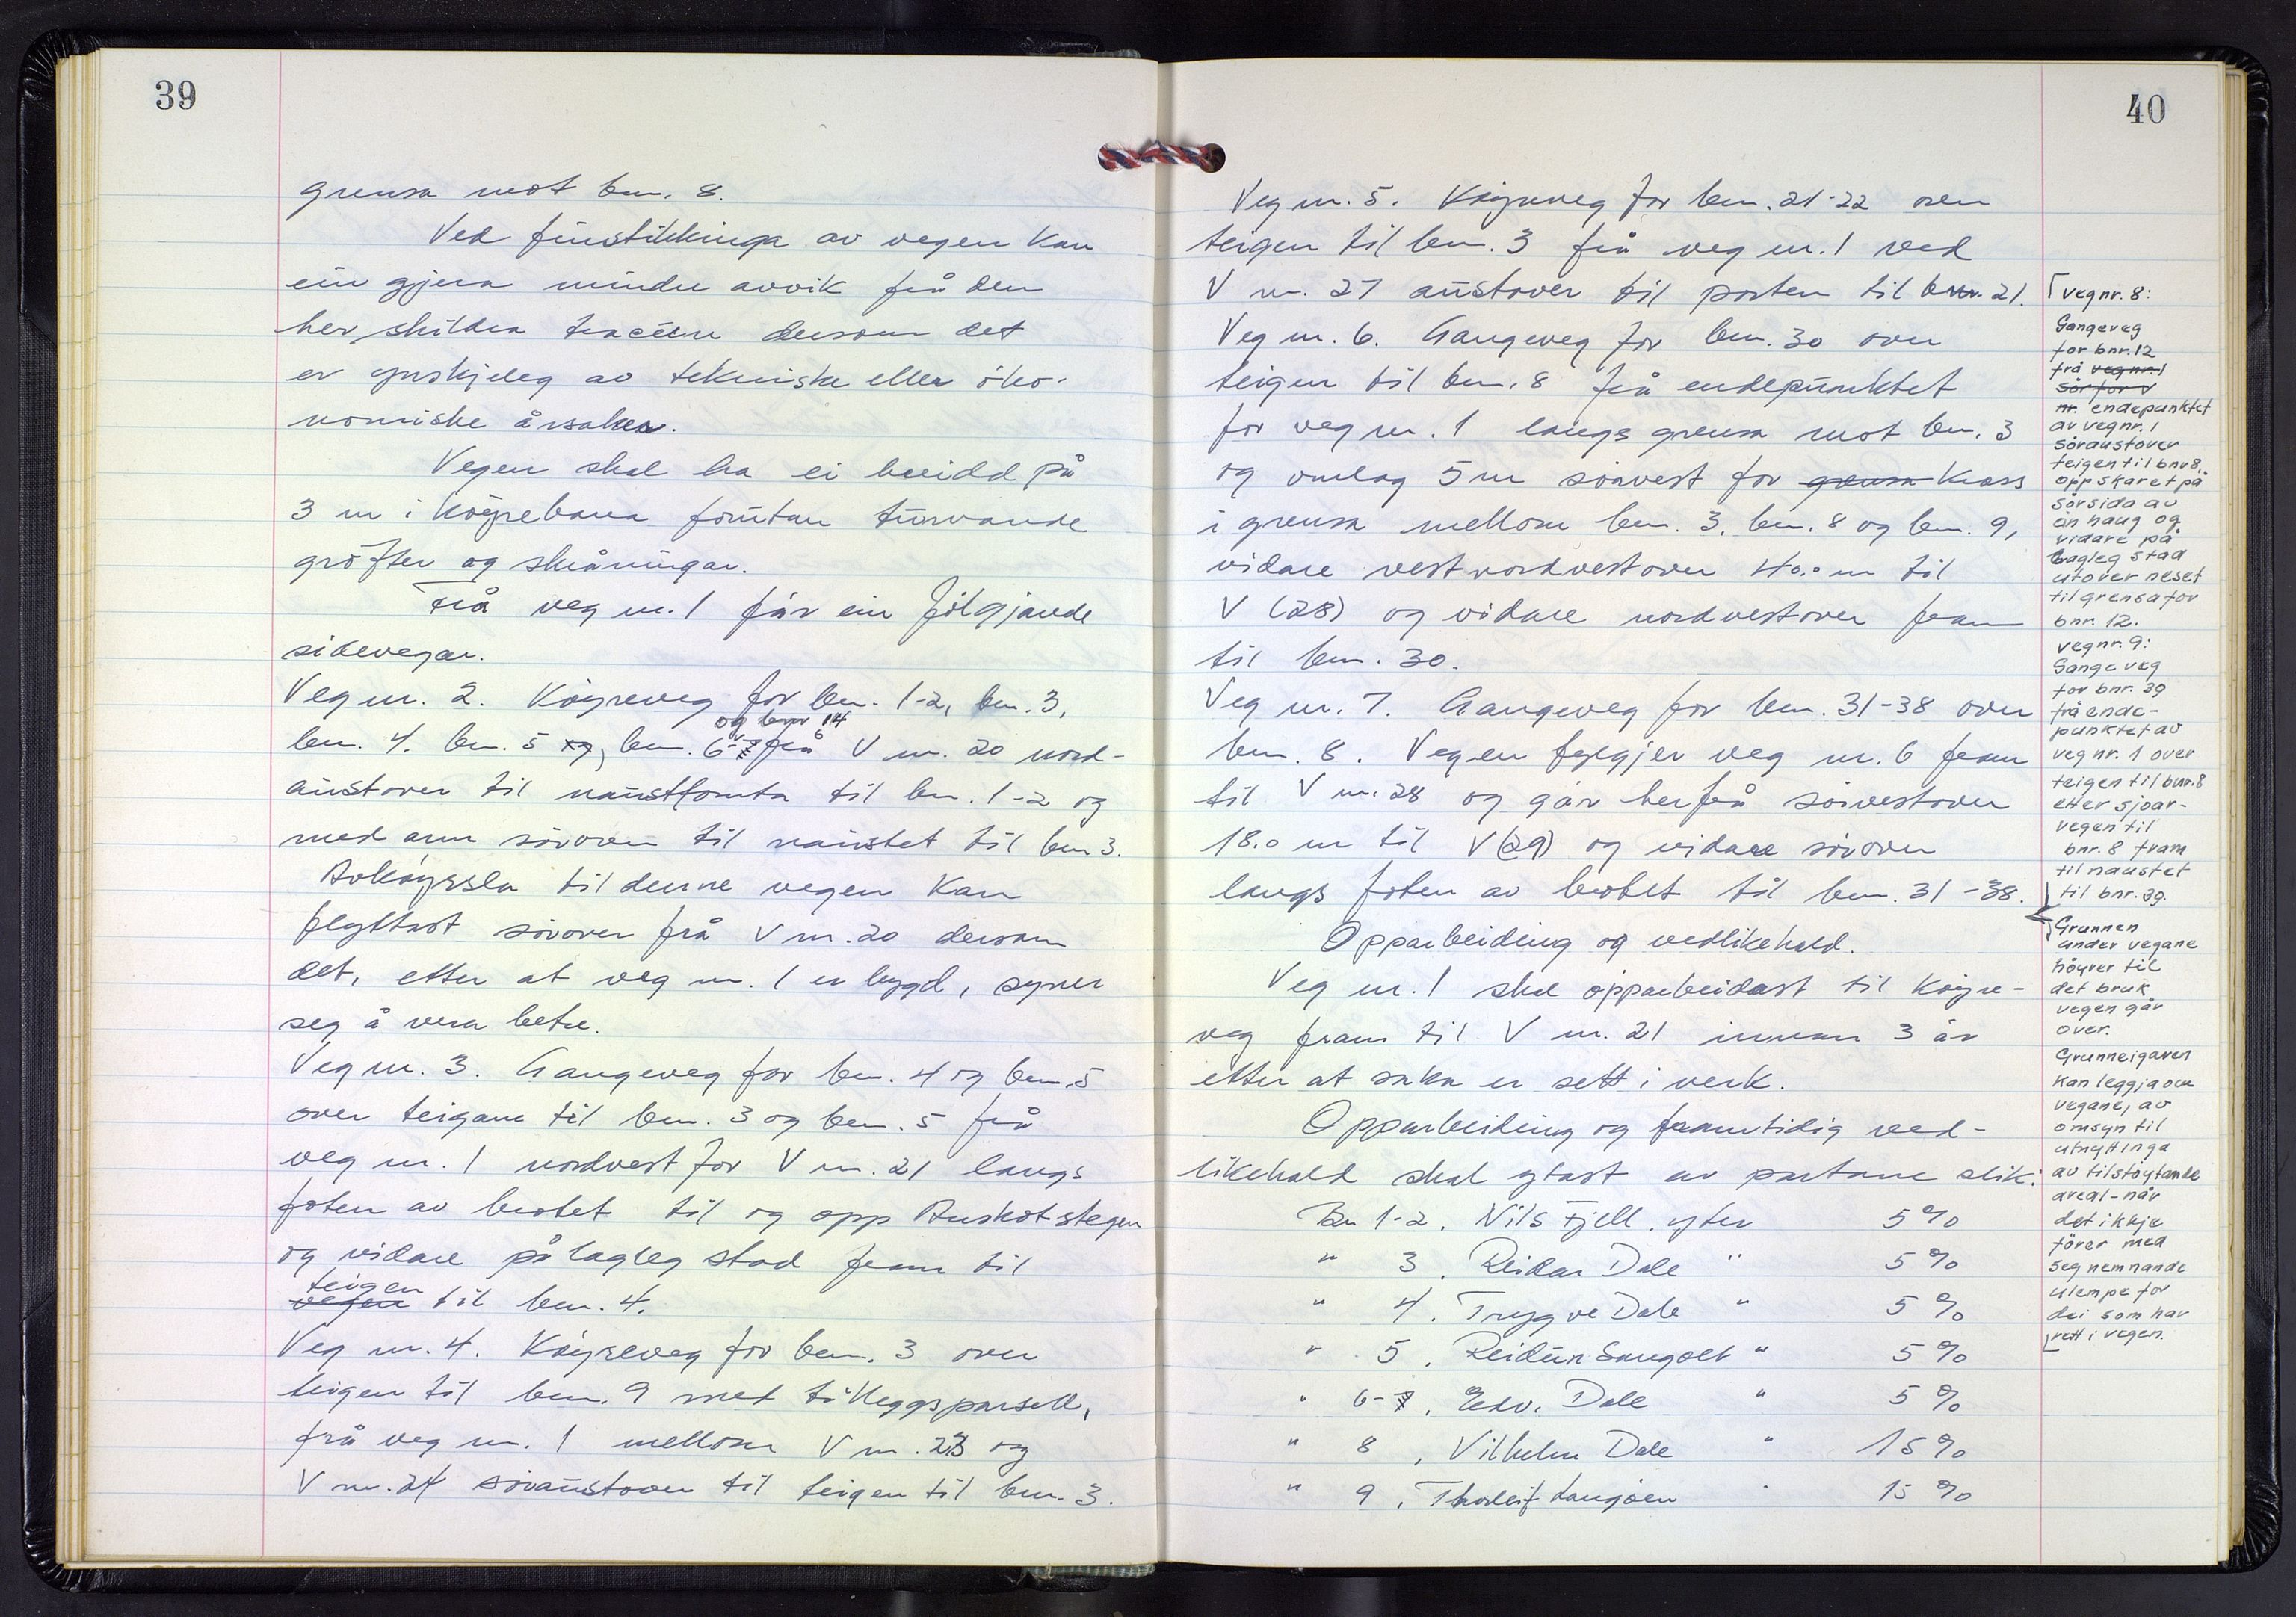 39
grensa mot bnr. 8.
Ved finstikkinga av vegen kan
ein gjera mindre avvik frå den
her skildra traceen dersom det
er ynskjeleg av tekniske eller öko-
nomiske årsaker.
Vegen skal ha ei breidd på
3 m i köyrebana foruten turvande
gröfter og skråningar.
Frå veg nr. 1 går ein fölgjande
sidevegar.
Veg nr. 2. Köyreveg for bnr. 1-2, bnr. 3,
og bnr 14
bnr. 4. bnr. 5 og, bnr. 6-7 frå V nr. 20 nord-
austover til nausttomta til bnr. 1-2 og
med arm sörover til naustet til bnr 3.
Avköyrsla til denne vegen kan
flyttast sörover frå V nr. 20 dersom
det, etter at veg nr. 1 er bygd, syner
seg å vera betre.
Veg nr. 3. Gangeveg for bnr. 4 og bnr. 5
over teigane til bnr. 3 og bnr. 5 frå
veg nr. 1 nordvest for V nr. 21 langs
foten av brotet til og opp Auskotstegen
og vidare på lagleg stad fram til
teigen
vegen til bnr. 4.
Veg nr. 4. Köyreveg for bnr. 3 over
teigen til bnr. 9 med tilleggsparsell,
frå veg nr. 1 mellom V nr. 23 og
V nr. 24 söraustover til teigen til bnr. 3.
40
Veg nr. 5. Köyreveg for bnr. 21-22 over
teigen til bnr. 3 frå veg nr. 1 ved
V nr. 27 austover til porten til bnr. 21.
Veg nr. 6. Gangeveg for bnr. 30 over
teigen til bnr. 8 frå endepunktet
for veg nr. 1 langs grensa mot bnr. 3
og omlag 5 m sörvest for grensa kross
i grensa mellom bnr. 3, bnr. 8 og bnr. 9,
vidare vestnordvestover 40.0 m til
V (28) og vidare nordvestover fram
til bnr. 30.
Veg nr. 7. Gangeveg for bnr. 31-38 over
bnr. 8. Vegen fylgjer veg nr. 6 fram
til V nr. 28 og går herfrå sörvestover
18.0 m til V (29) og vidare sörover
langs foten av brotet til bnr. 31-38.
Opparbeiding og vedlikehald.
Veg nr. 1 skal opparbeidast til köyre-
veg fram til V nr. 21 innan 3 år
etter at saka er sett i verk.
Opparbeiding og framtidig ved-
likehald skal ytast av partane slik:
Bnr 1-2. Nils Fjell. yter 5 %
" 3. Reidar Dale " 5 %
" 4. Trygve Dale " 5 %
" 5. Reidun Sangolt " 5 %
" 6-7. Edv. Dale " 5 %
" 8, Vilhelm Dale " 15 %
" 9, Thorleif Langöen " 15 %
veg nr. 8:
Gangeveg
for bnr. 12
frå veg nr. 1
sör for V
nr. endepunktet
av veg nr. 1
söraustover
teigen til bnr 8,
opp skaret på
sörsida av
ein haug og
vidare på
lagleg stad
utover neset
til grensa for
bnr. 12.
veg nr. 9:
Gangeveg
for bnr. 39
frå ende-
punktet av
veg nr. 1 over
teigen til bnr. 8
etter sjöar-
vegen til
bnr. 8 fram
til naustet
til bnr. 39.
Grunnen
under vegane
höyrer til
det bruk
vegen går
over.
Grunneigaren
kan leggja om
vegane, av
omsyn til
utnyttinga
av tilstöytande
areal - når
det ikkje
förer med
seg nemnande
ulempe for
dei som har
rett i vegen.